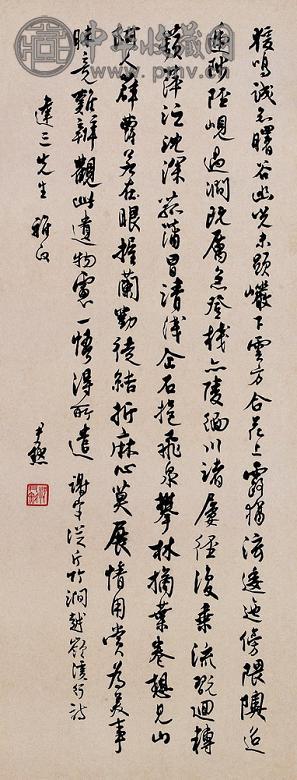 猨鳴誠知曙谷幽光未顯巖下雲方合花上露猶泫逶迤傍隈隩迢
遞陟陘峴過澗既厲急登棧亦陵緬川渚屢徑復乘流翫迴轉
蘋萍泛沈深菰蒲冒清淺企石挹飛泉攀林摘葉卷想見山
阿人薜蘿若在眼握蘭勤徒結折麻心莫展情用賞為美事
昧竟誰辨觀此遺物慮一悟得所遣 謝客從斤竹澗越嶺溪行詩
達三先生雅正
尹默